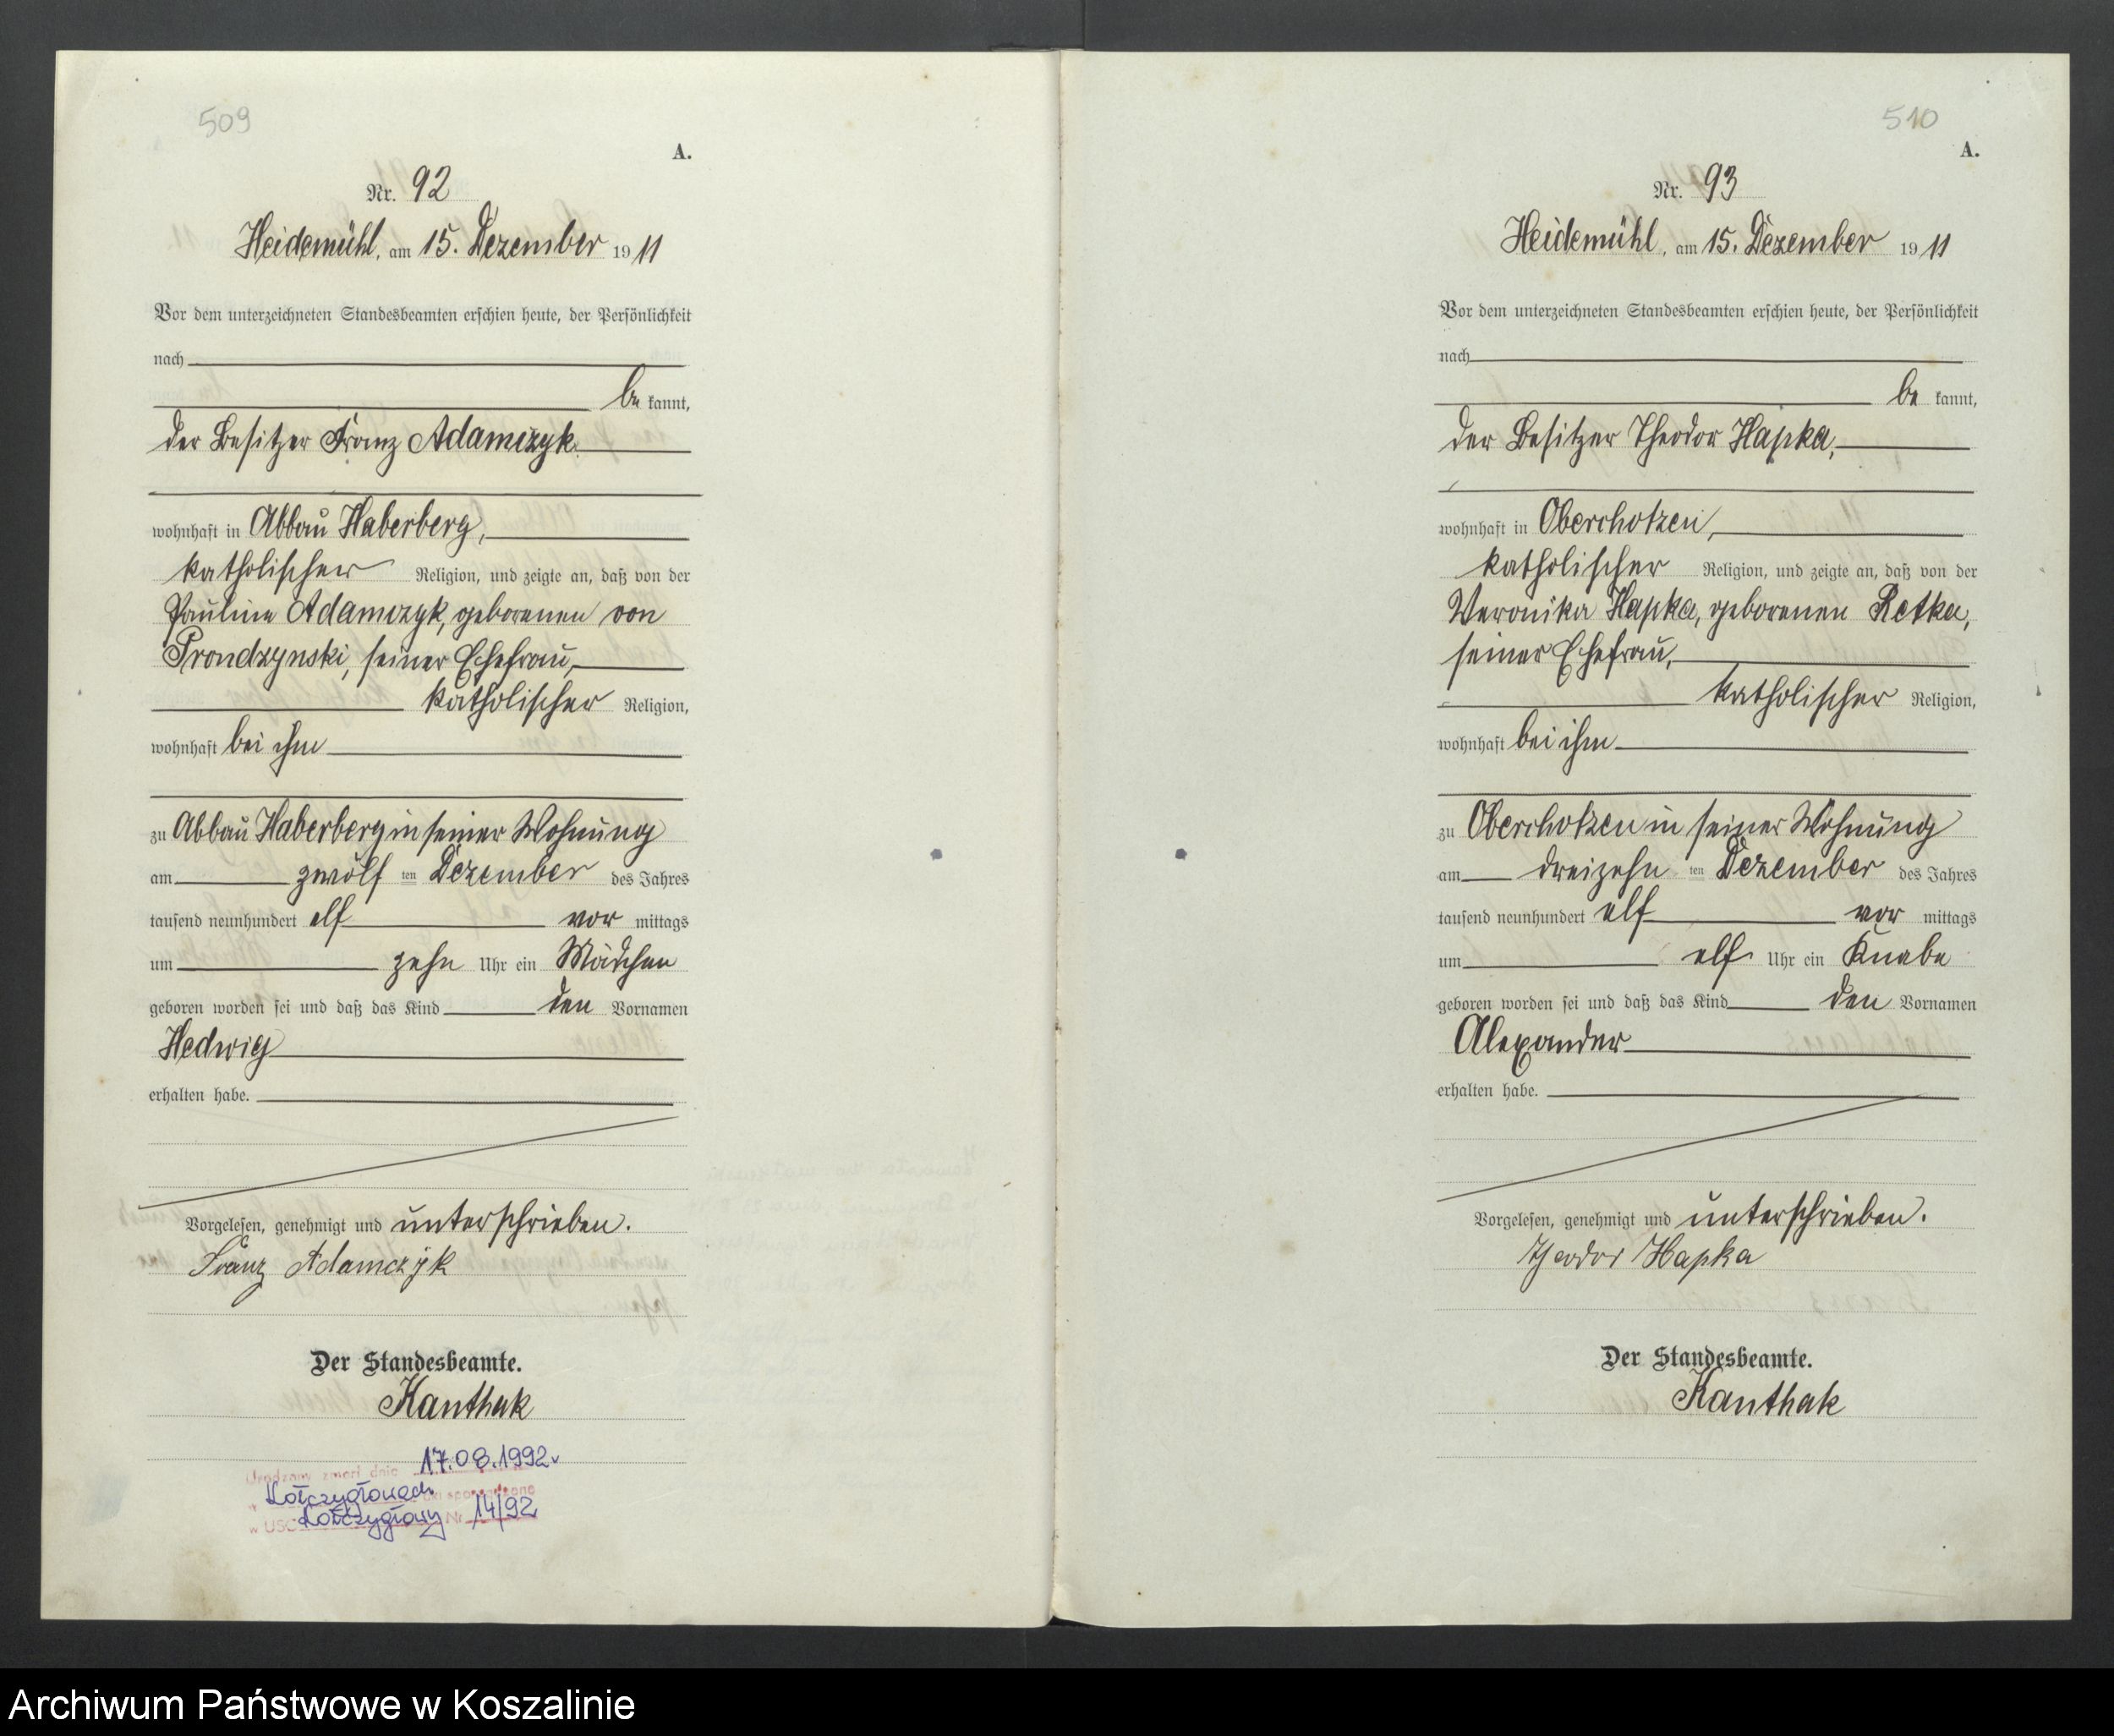 509
A.
Nr. 92
Heidemühl, am 15. Dezember 1911
Vor dem unterzeichneten Standesbeamten erschien heute, der Persönlichkeit
nach
be kannt,
der Besitzer Franz Adamczyk
wohnhaft in Abbau Haberberg,
katholischer Religion, und zeigte an, daß von der
Pauline Adamczyk, geborenen von
Prondzynski, seiner Ehefrau,
katholischer Religion,
wohnhaft bei ihm
zu Abbau Haberberg in seiner Wohnung
am zwölf ten Dezember des Jahres
tausend neunhundert elf vor mittags
um zehn Uhr ein Mädchen
geboren worden sei und daß das Kind den Vornamen
Hedwig
erhalten habe.
Vorgelesen, genehmigt und unterschrieben.
Franz Adamczyk
Der Standesbeamte.
Kanthak
zmarł dnia 17.08.1992
Kołczygłowach
w USC Kołczygłowy Nr 14/92
510
A.
Nr. 93
Heidemühl, am 15. Dezember 1911
Vor dem unterzeichneten Standesbeamten erschien heute, der Persönlichkeit
nach
be kannt,
der Besitzer Theodor Hapka,
wohnhaft in Oberchotzen,
katholischer Religion, und zeigte an, daß von der
Veronika Hapka, geborenen Retka,
seiner Ehefrau,
katholischer Religion,
wohnhaft bei ihm
zu Oberchotzen in seiner Wohnung
am dreizehn ten Dezember des Jahres
tausend neunhundert elf vor mittags
um elf Uhr ein Knabe
geboren worden sei und daß das Kind den Vornamen
Alexander
erhalten habe.
Vorgelesen, genehmigt und unterschrieben.
Theodor Hapka
Der Standesbeamte.
Kanthak
Archiwum Państwowe w Koszalinie